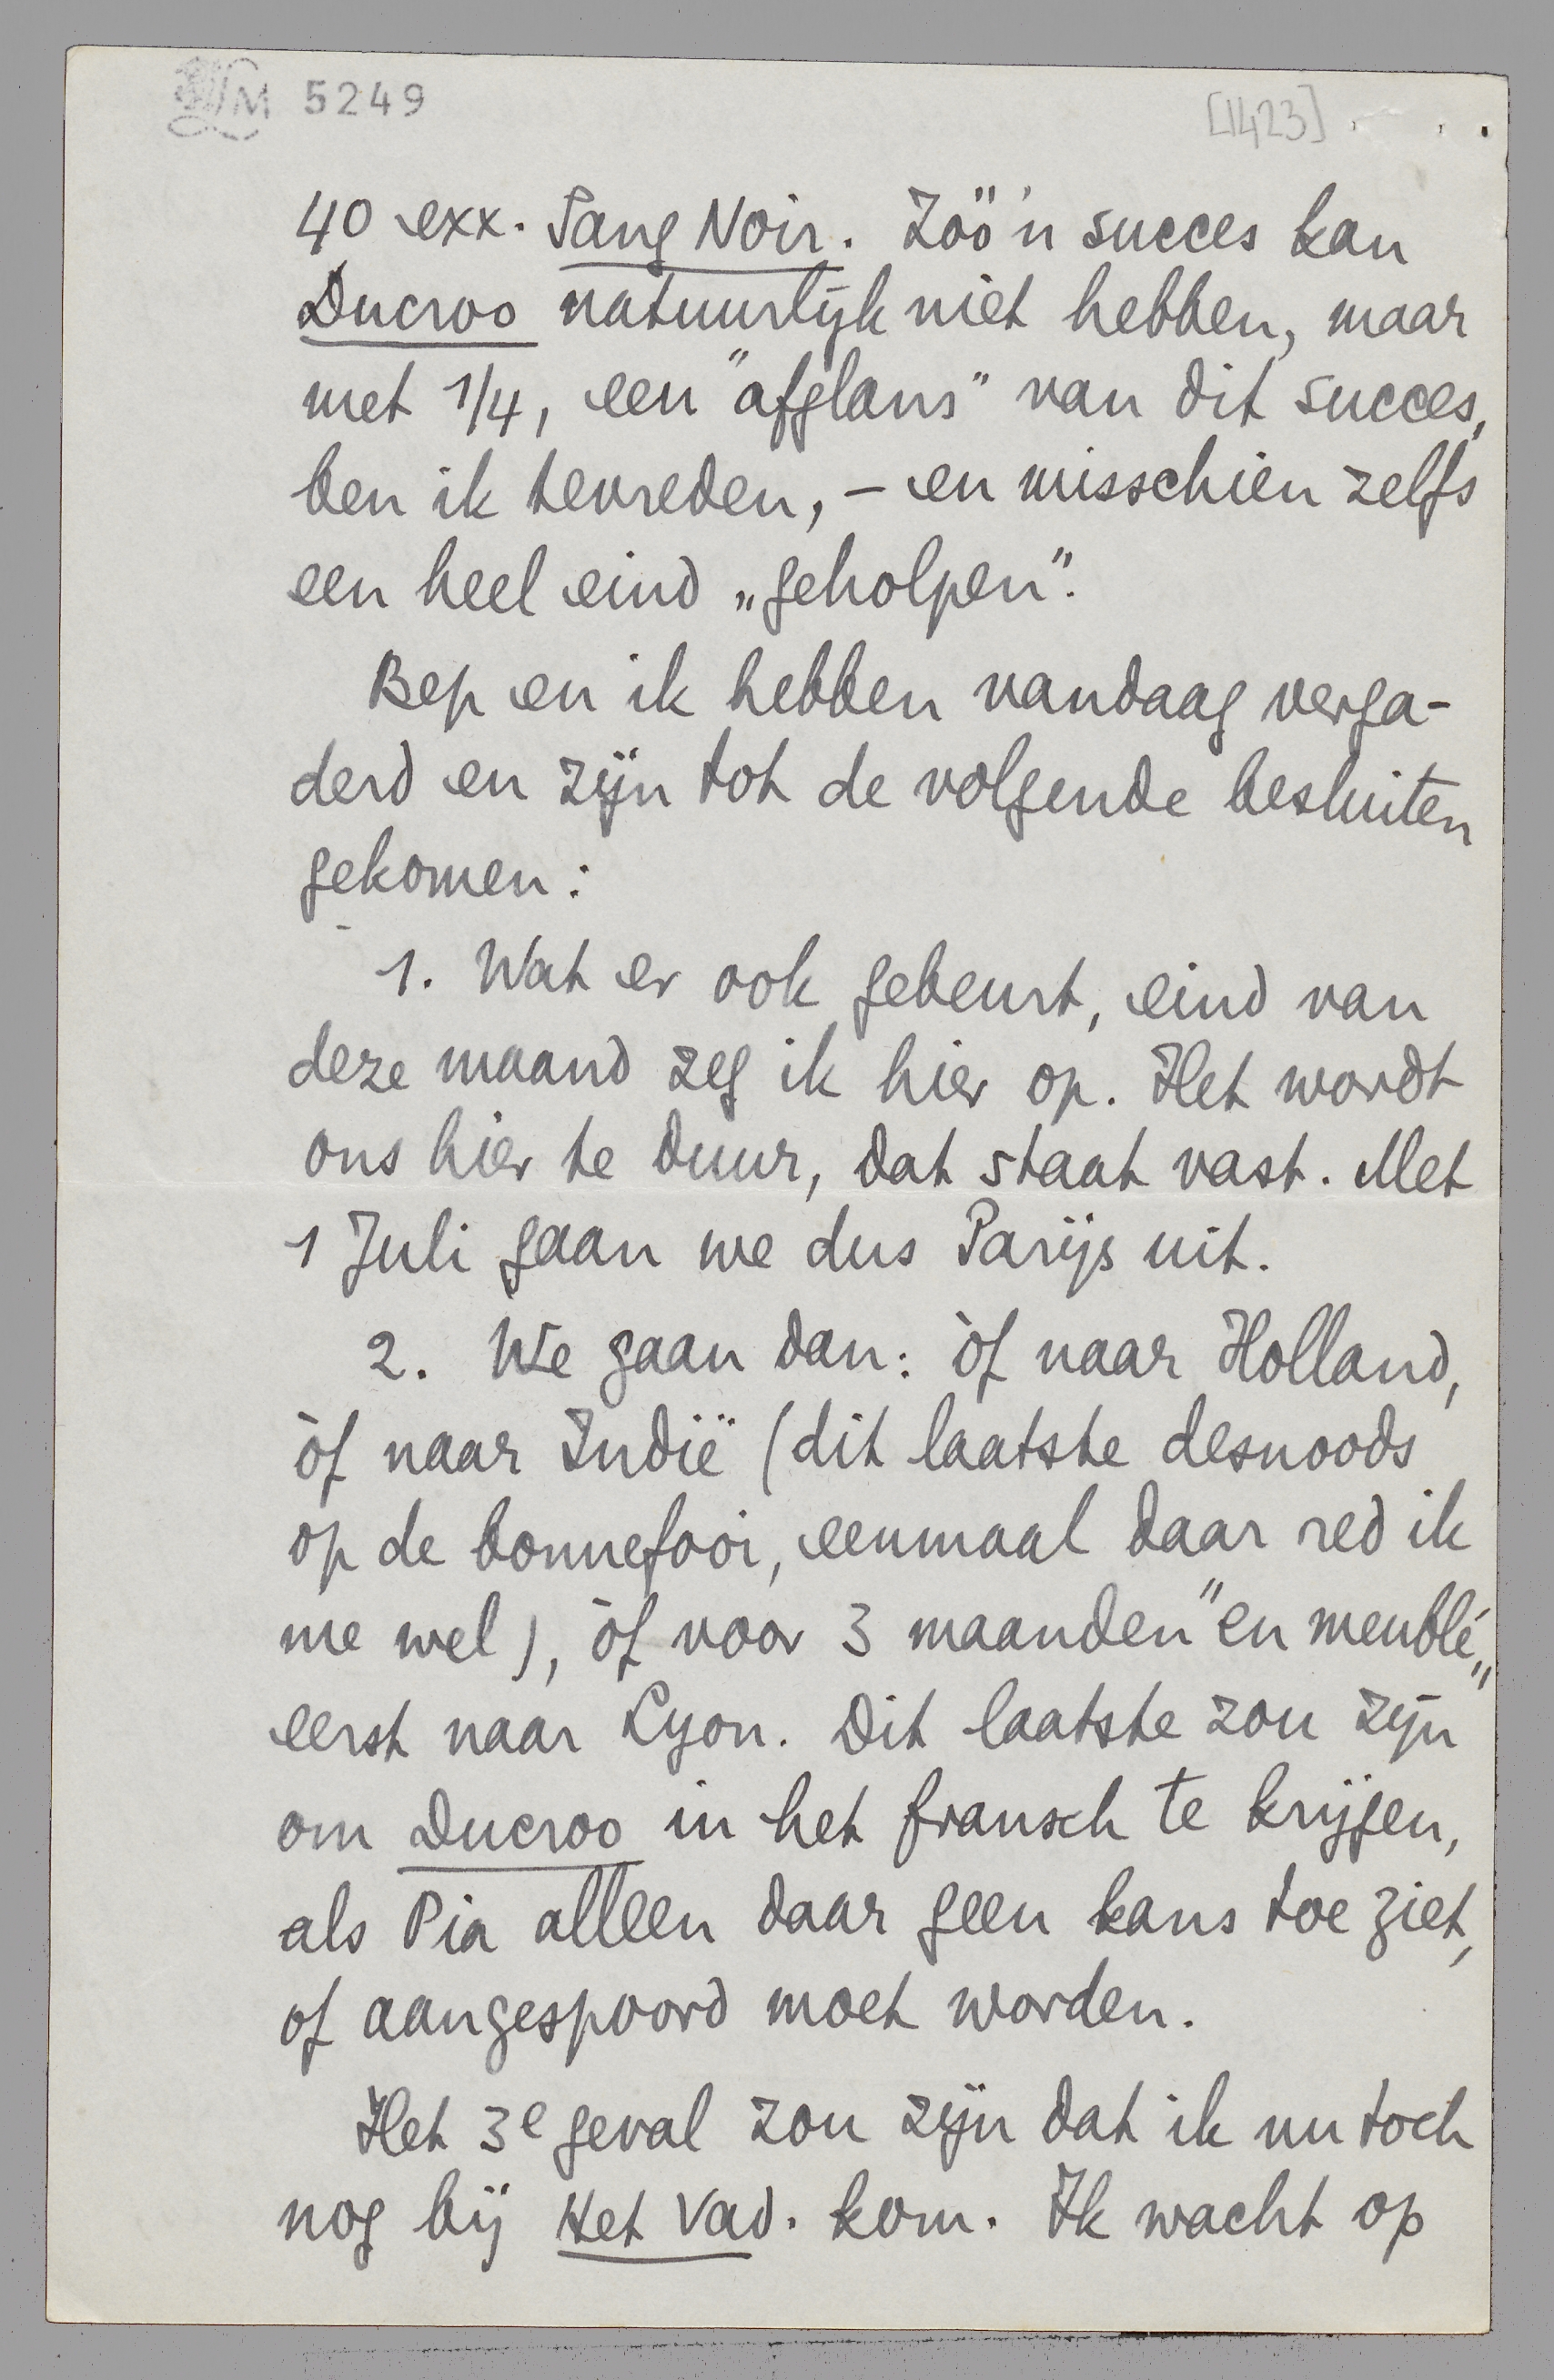 LM 5249
[1423]
40 exx. Sang Noir. Zöö'n succes kan
Ducroo natuurlijk niet hebben, maar
met 1/4, een "afglans" van dit succes,
ben ik tevreden, – en misschien zelfs
een heel eind „geholpen".
Bep en ik hebben vandaag verga-
derd en zijn tot de volgende besluiten
gekomen:
1. Wat er ook gebeurt, eind van
deze maand zeg ik hier op. Het wordt
ons hier te duur, dat staat vast. Met
1 Juli gaan we dus Parijs uit.
2. We gaan dan: òf naar Holland,
òf naar Indië (dit laatste desnoods
op de bonnefooi, eenmaal daar red ik
me wel), òf voor 3 maanden "en meublé„
eerst naar Lyon. Dit laatste zou zijn
om Ducroo in het fransch te krijgen,
als Pia alleen daar geen kans toe ziet,
of aangespoord moet worden.
Het 3e geval zou zijn dat ik nu toch
nog bij Het Vad. kom. Ik wacht op